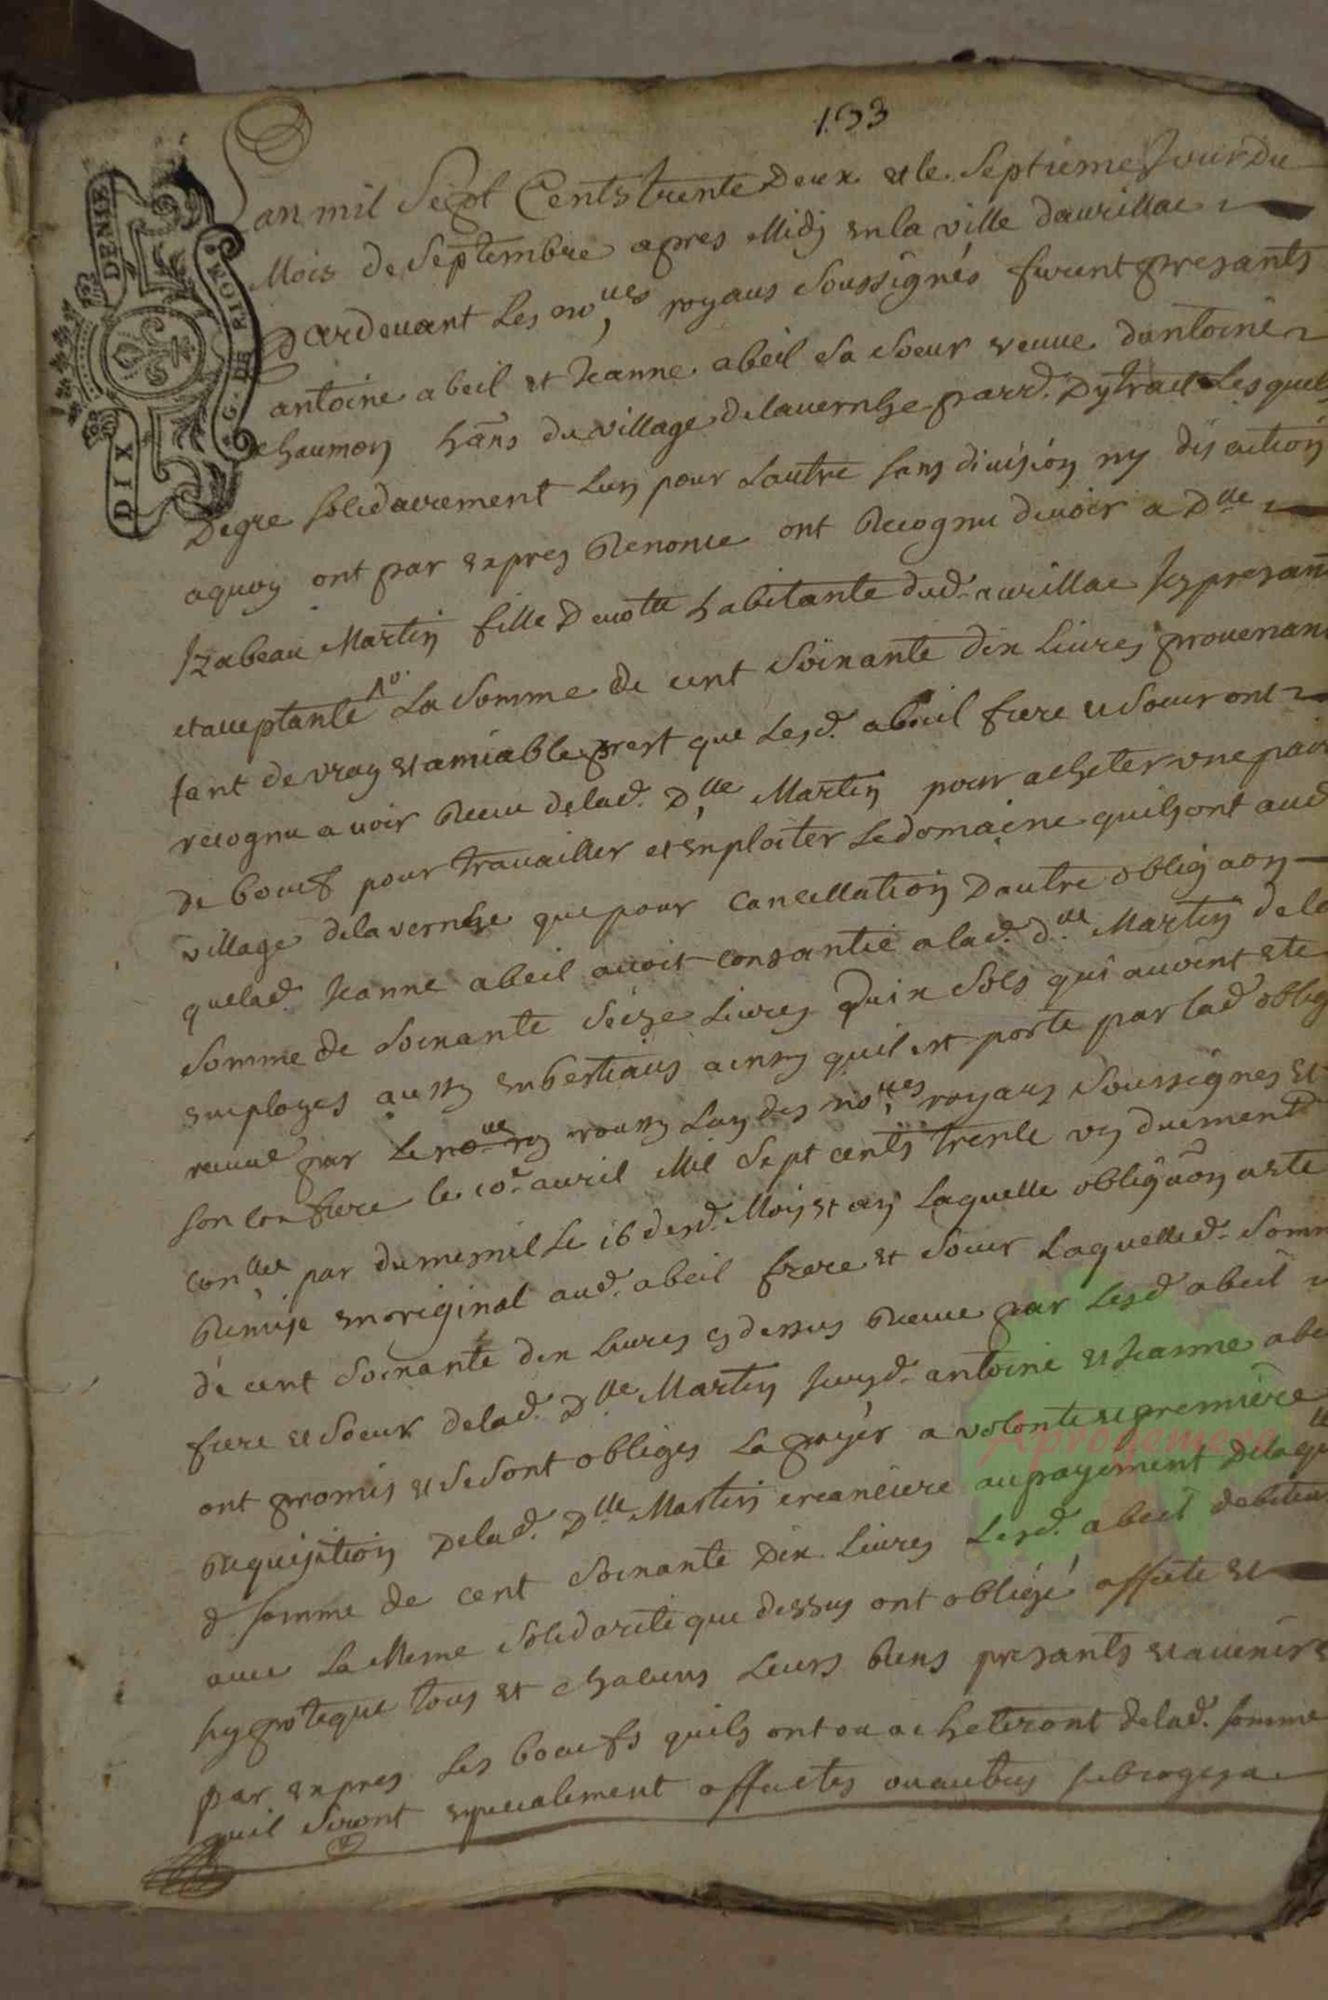 193
DIX DENIE
G. DE RIOM
Lan mil Sept Cents trente Deux et le Septieme Jour du
Mois de Septembre apres Midy en la ville daurillac
Pardevant les no.res royaux soussignés furent presants
antoine abeil et Jeanne abeil sa soeur veuve dantoine
chaumon hans du village delavernhe parr.e Dytrac Lesquels
Degre solidairement lun pour lautre sans division ny discution
aquoy ont par expres Renonce ont Recognu devoir a D.lle
Izabeau Martin fille Devotte habitante dud. aurillac Icy presan
et acceptante La somme de cent Soixante dix Livres provenan
tant de vray et amiable prest que Lesd. abeil frere et soeur ont
recognu avoir Receu delad. D.lle Martin pour acheter une pair
de boeuf pour travailler et Enploiter Le domaine quils ont aud
village delavernhe que pour Cancellation Dautre obligaon
quelad. Jeanne abeil avoit consantie alad. d.lle Martin dela
somme de Soixante Seize Livres Quinx Sols qui avoint ete
employes aussy en bestiaux ainsy quil est porté par lad oblig
receue par Le no.re roussy Lun des no.res royaux soussignes et
son confrere le 10.e avril Mil Sept cents trente un duement
con.llee par dumesnil Le 16 desd. Mois et an Laquelle obligaon a ete
Remise en original aud. abeil frere et soeur Laquelle d. somm
de cent soixante dix Livres cy dessus Receue par Lesd abeil
frere et soeur delad. D.lle Martin Iceuxd. antoine et Jeanne abe
ont promis et se sont obliges La payer a volonte et premiere
Requisition Delad. D.lle Martin creanciere au payement Delaqu.lle
d. somme de cent soixante Dix Livres Lesd. abeil debiteur
avec La Meme solidarite que dessus ont obligé affecte et
hypoteque tous et chacuns Leurs biens presants et avenir
par expres Les boeufs quils ont ou acheteront delad. somme
quil seront specialement affectes
Aprogemere